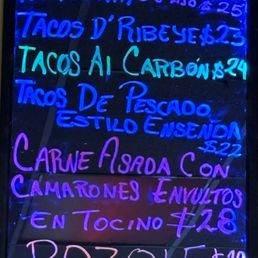 $25
TACOS D' RIBEYE $23
TACOS Al CARBÓN $24
TACOS DE PESCADO
ESTILO ENSENDA
$22
CARNE ASADA CON
CAMARONES ENVULTOS
EN TOCINO $28
POZOLE